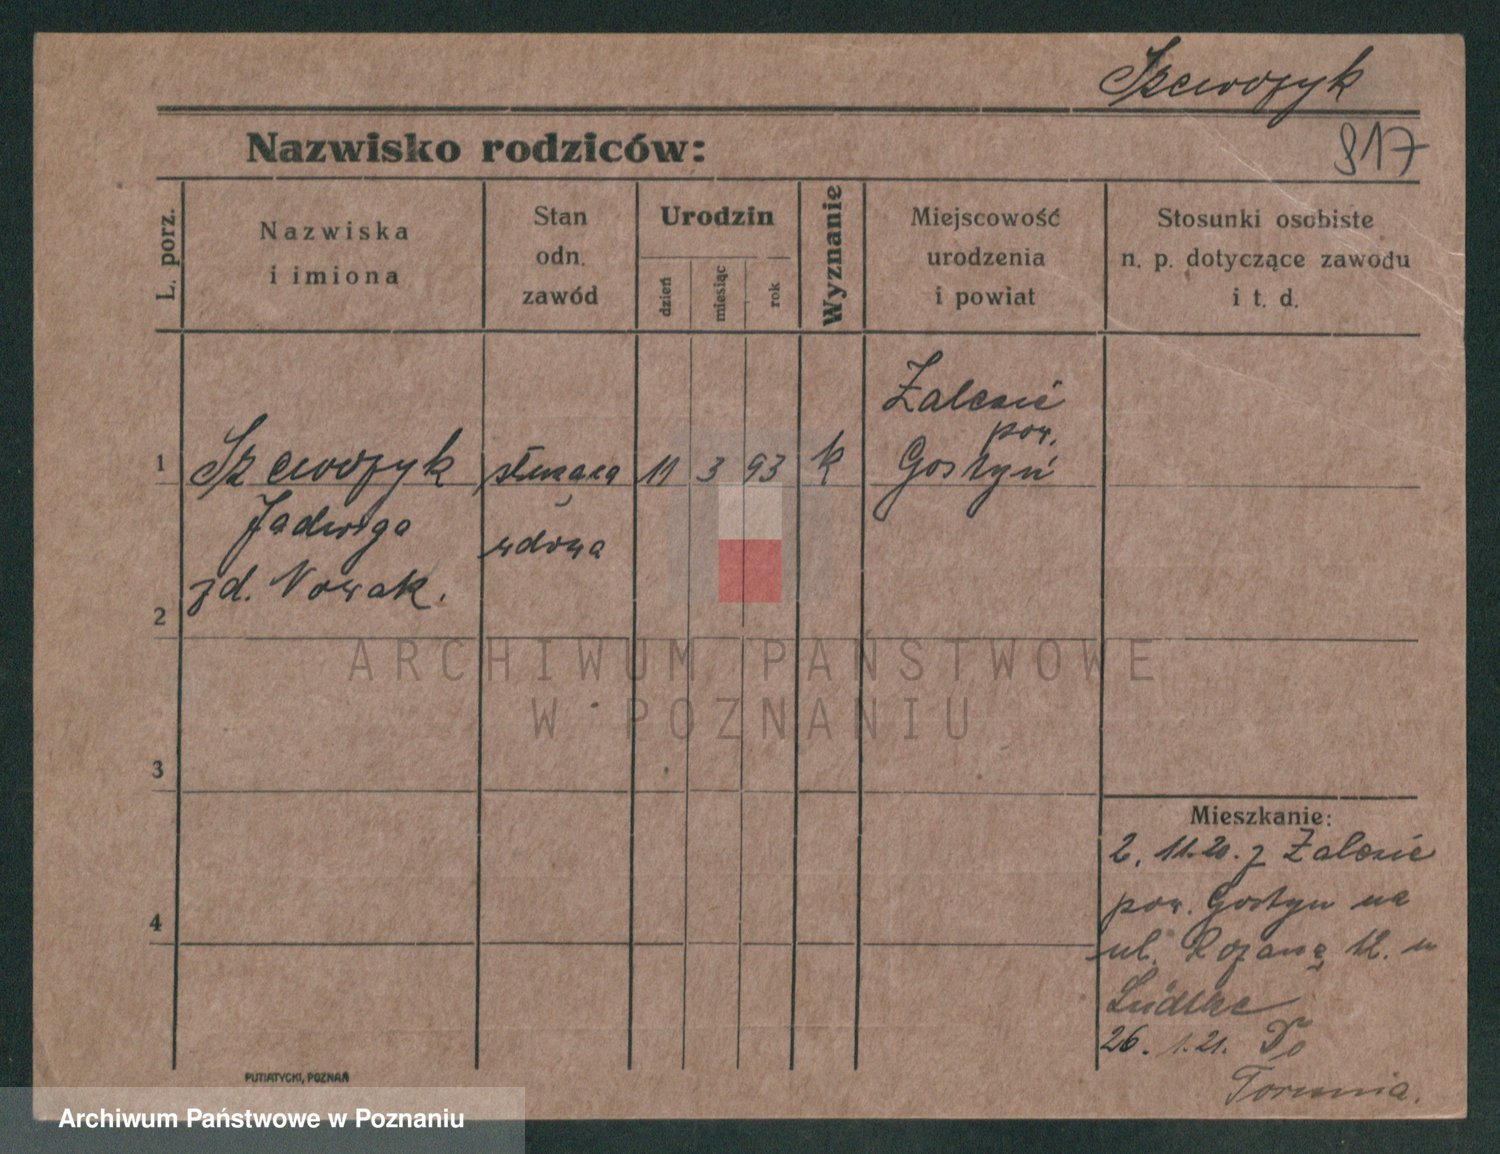 Szewczyk
817
Nazwisko rodziców:
L. porz.
Nazwiska
i imiona
Stan
odn.
zawód
Urodzin
dzień
miesiąc
rok
Wyznanie
Miejscowość
urodzenia
i powiat
Stosunki osobiste
n. p. dotyczące zawodu
i t. d.
1
Szewczyk
Jadwiga
zd. Nowak.
służąca
wdowa
11
3
93
k
Zalesie
pow.
Gostyń
2
3
4
Mieszkanie:
2. 11.20. z Zalesie
pow. Gostyn na
ul. Różaną 12. u
Lüdtke
26. 1.21. Do
Torunia.
PUTIATYCKI, POZNAŃ
ARCHIWUM PAŃSTWOWE
W POZNANIU
Archiwum Państwowe w Poznaniu